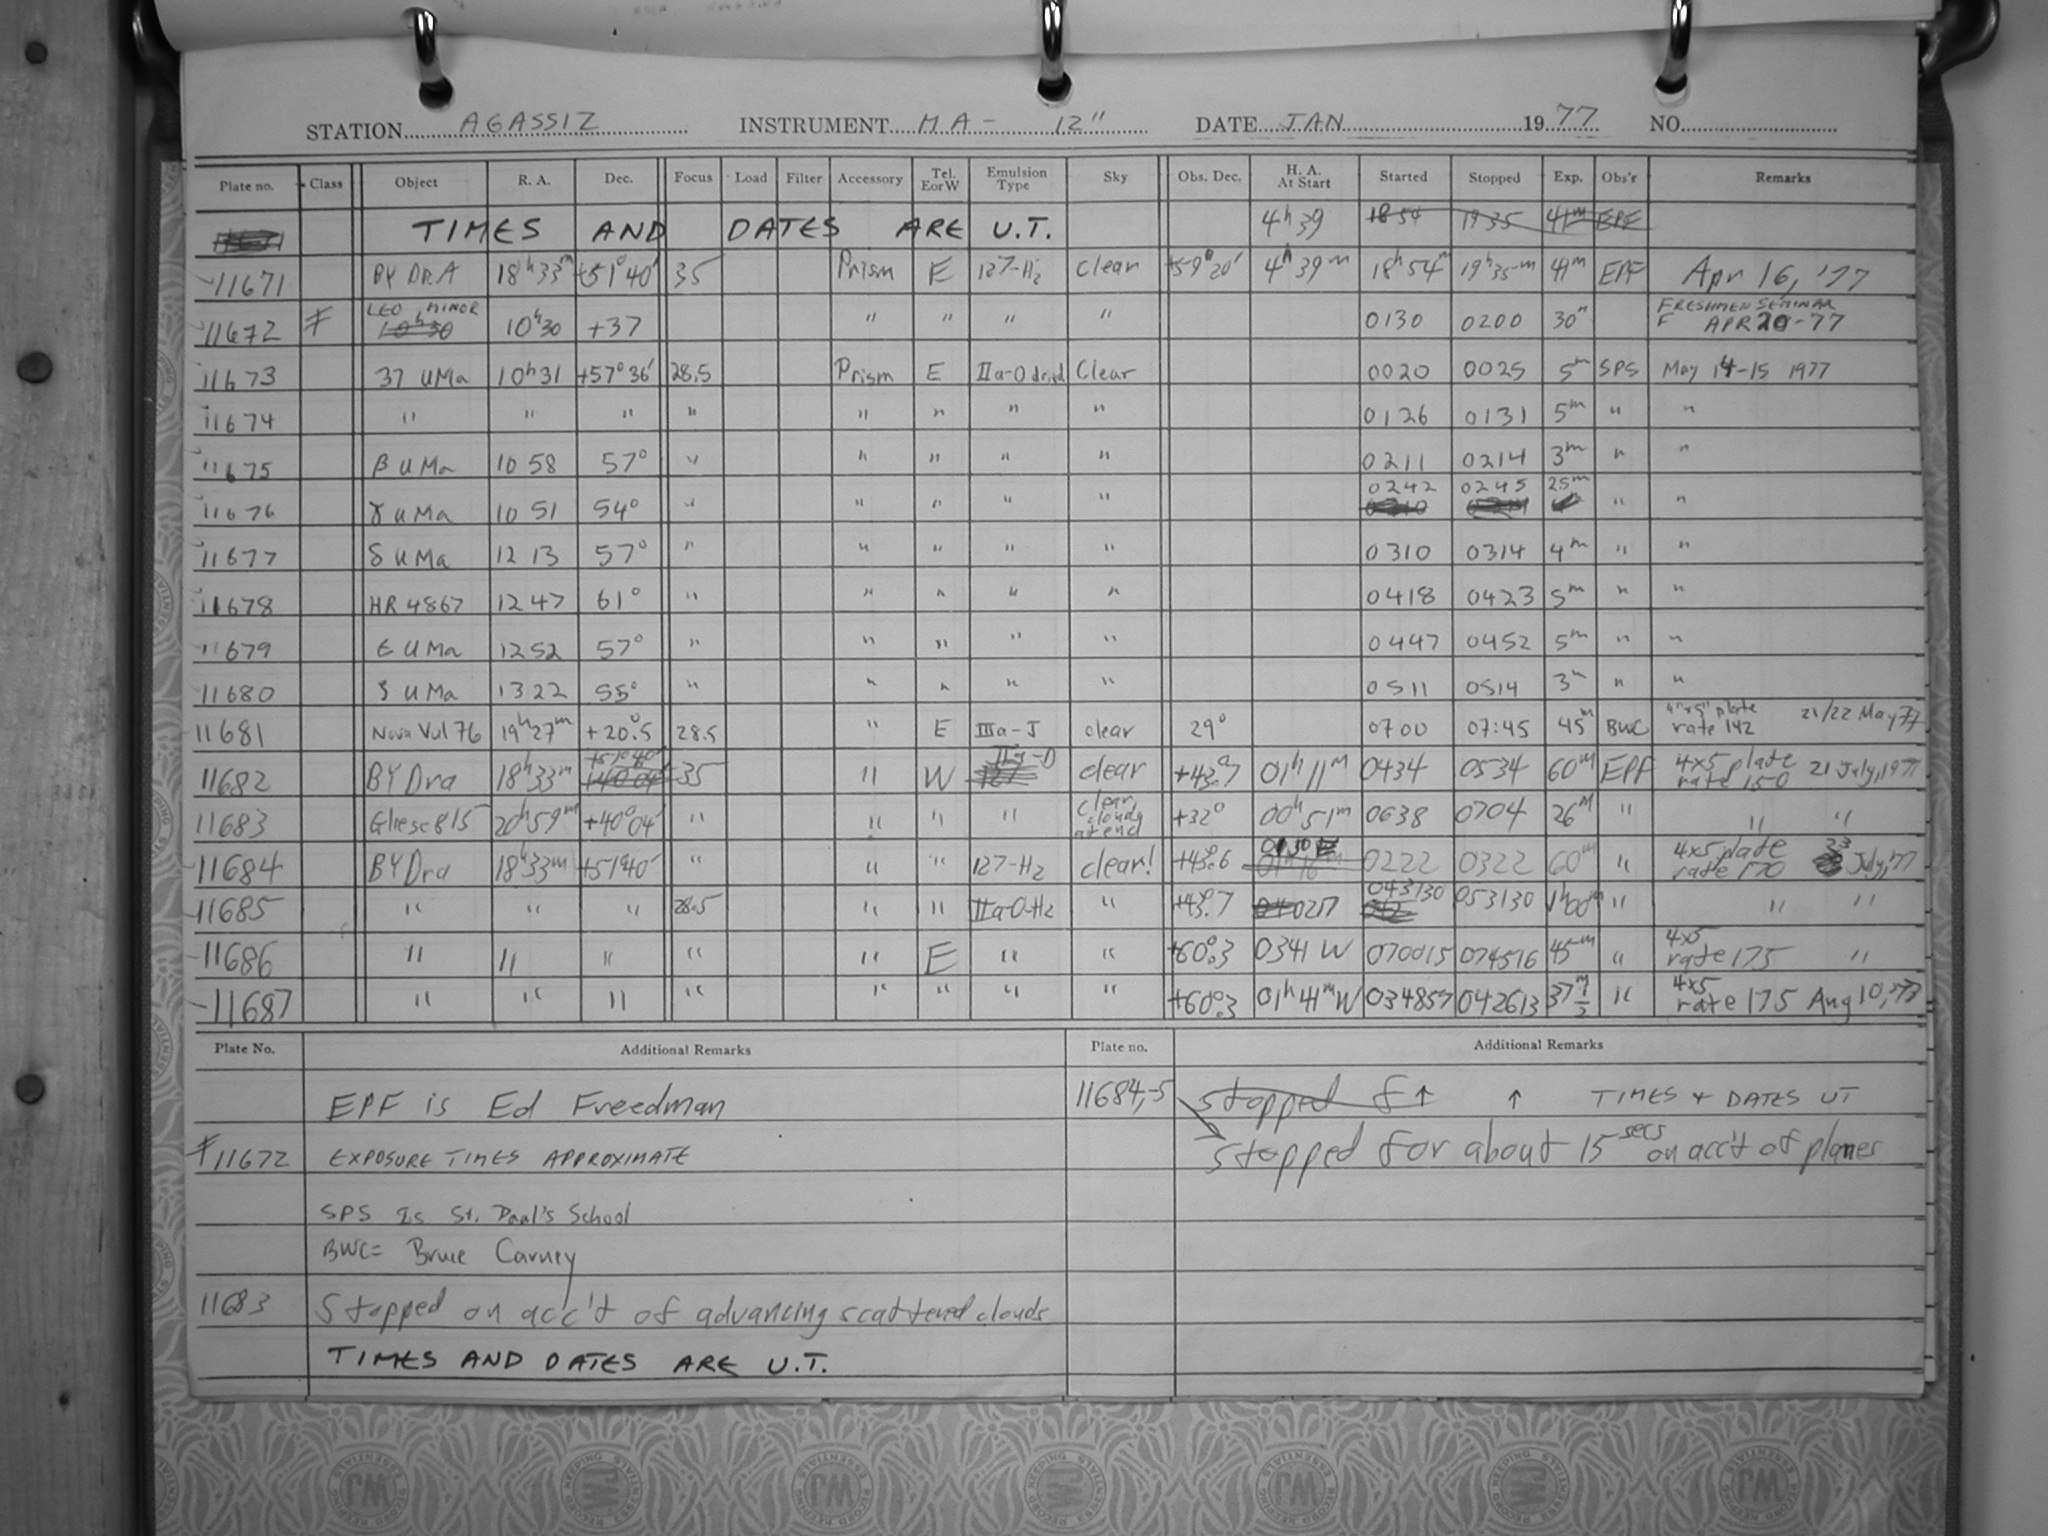 STATION AGASSIZ INSTRUMENT MA- 12" DATE JAN 1977 NO.
Plate no. Class Object R. A. Dec. Focus Load Filter Accessory Tel. E or W Emulsion Type Sky Obs. Dec. H. A. At Start Started Stopped Exp. Obs'r Remarks
TIMES AND DATES ARE U.T. 4h 39 1854 1935 41m EPF
11671 BY DRA 18h 33m +51° 40' 35 Prism E 127-Hz clear +59° 20' 4h 39m 18h 54m 19h 35m 41m EPF Apr 16, '77
11672 F LEO MINOR 10h30 10h30 +37 " " " " 0130 0200 30m FRESHMEN SEMINAR F APR 20-77
11673 37 UMa 10h31 +57° 36' 28.5 Prism E IIa-O dried Clear 0020 0025 5m SPS May 14-15 1977
11674 " " " " " " " " 0126 0131 5m " "
11675 β UMa 10 58 57° " " " " " 0211 0214 3m " "
11676 γ UMa 10 51 54° " " " " " 0242 0245 25m " "
11677 δ UMa 12 13 57° " " " " " 0310 0314 4m " "
11678 HR 4867 12 47 61° " " " " " 0418 0423 5m " "
11679 ε UMa 12 52 57° " " " " " 0447 0452 5m " "
11680 ζ UMa 13 22 55° " " " " " 0511 0514 3m " "
11681 Nova Vul 76 19h 27m +20°.5 28.5 " E IIIa-J clear 29° 0700 07:45 45m BWC 4"x5" plate rate 142 21/22 May 77
11682 BY Dra 18h 33m +51°40' 35 " W IIa-O clear +43°.7 01h 11m 0434 0534 60m EPF 4x5 plate rate 150 21 July, 1977
11683 Gliese 815 20h 59m +40°04' " " " " clear, cloudy at end +32° 00h 51m 0638 0704 26m " " "
11684 BY Dra 18h 33m +51°40' " " " 127-Hz clear! +43°.6 0222 0322 60m " 4x5 plate rate 170 23 July, '77
11685 " " " 28.5 " " IIa-O-Hz " +43°.7 0217 043130 053130 1h00m " " "
11686 " " " " " E " " +60°.3 0341 W 070015 074516 45m " 4x5 rate 175 "
11687 " " " " " " " " +60°.3 01h 41m W 034857 042613 37m 1/2 " 4x5 rate 175 Aug 10, '77
Plate No. Additional Remarks Plate no. Additional Remarks
EPF is Ed Freedman 11684,-5 Stopped f↑ ↑ TIMES + DATES UT
F 11672 EXPOSURE TIMES APPROXIMATE Stopped for about 15 secs on acc't of planes
SPS Is St. Paul's School
BWC= Bruce Carney
11683 Stopped on acc't of advancing scattered clouds
TIMES AND DATES ARE U.T.